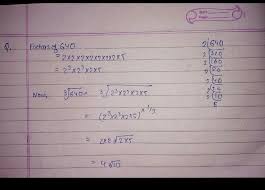 Q. Factors of 640
= 2×2×2×2×2×2×2×5
= 2³×2³×2×5
Now, ∛640 = ∛2³×2³×2×5
= (2³×2³×2×5)^×1/3
= 2×2∛2×5
= 4∛10
2|640
2|320
2|160
2|80
2|40
2|20
2|10
5